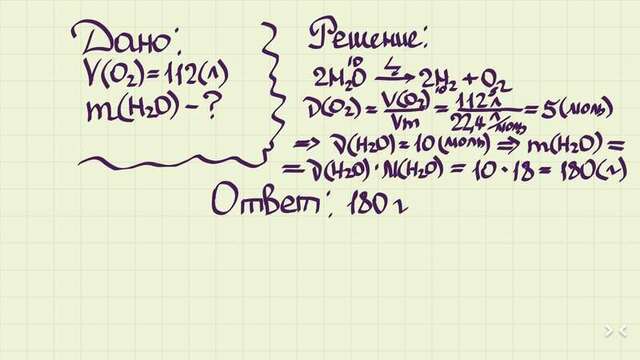 Дано:
V(O₂)=112(л)
m(H₂O)-?
Решение:
2H₂O → 2H₂ + O₂
ν(O₂) = V(O₂)/Vm = 112 л / 22,4 л/моль = 5(моль)
⇒ ν(H₂O) = 10(моль) ⇒ m(H₂O) =
= ν(H₂O)·M(H₂O) = 10·18 = 180(г)
Ответ: 180 г